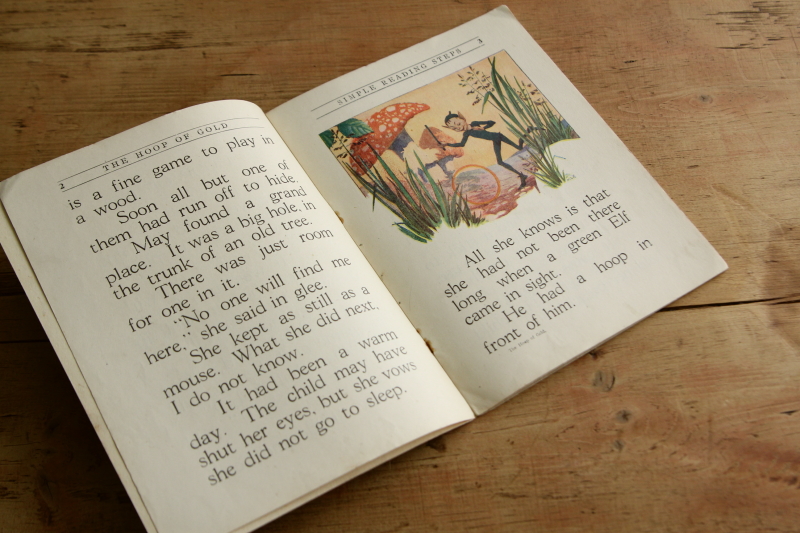 2 THE HOOP OF GOLD
is a fine game to play in
a wood.
Soon all but one of
them had run off to hide.
May found a grand
place. It was a big hole, in
the trunk of an old tree.
There was just room
for one in it.
"No one will find me
here," she said in glee.
She kept as still as a
mouse. What she did next,
I do not know.
It had been a warm
day. The child may have
shut her eyes, but she vows
she did not go to sleep.
SIMPLE READING STEPS 3
All she knows is that
she had not been there
long when a green Elf
came in sight.
He had a hoop in
front of him.
The Hoop of Gold.